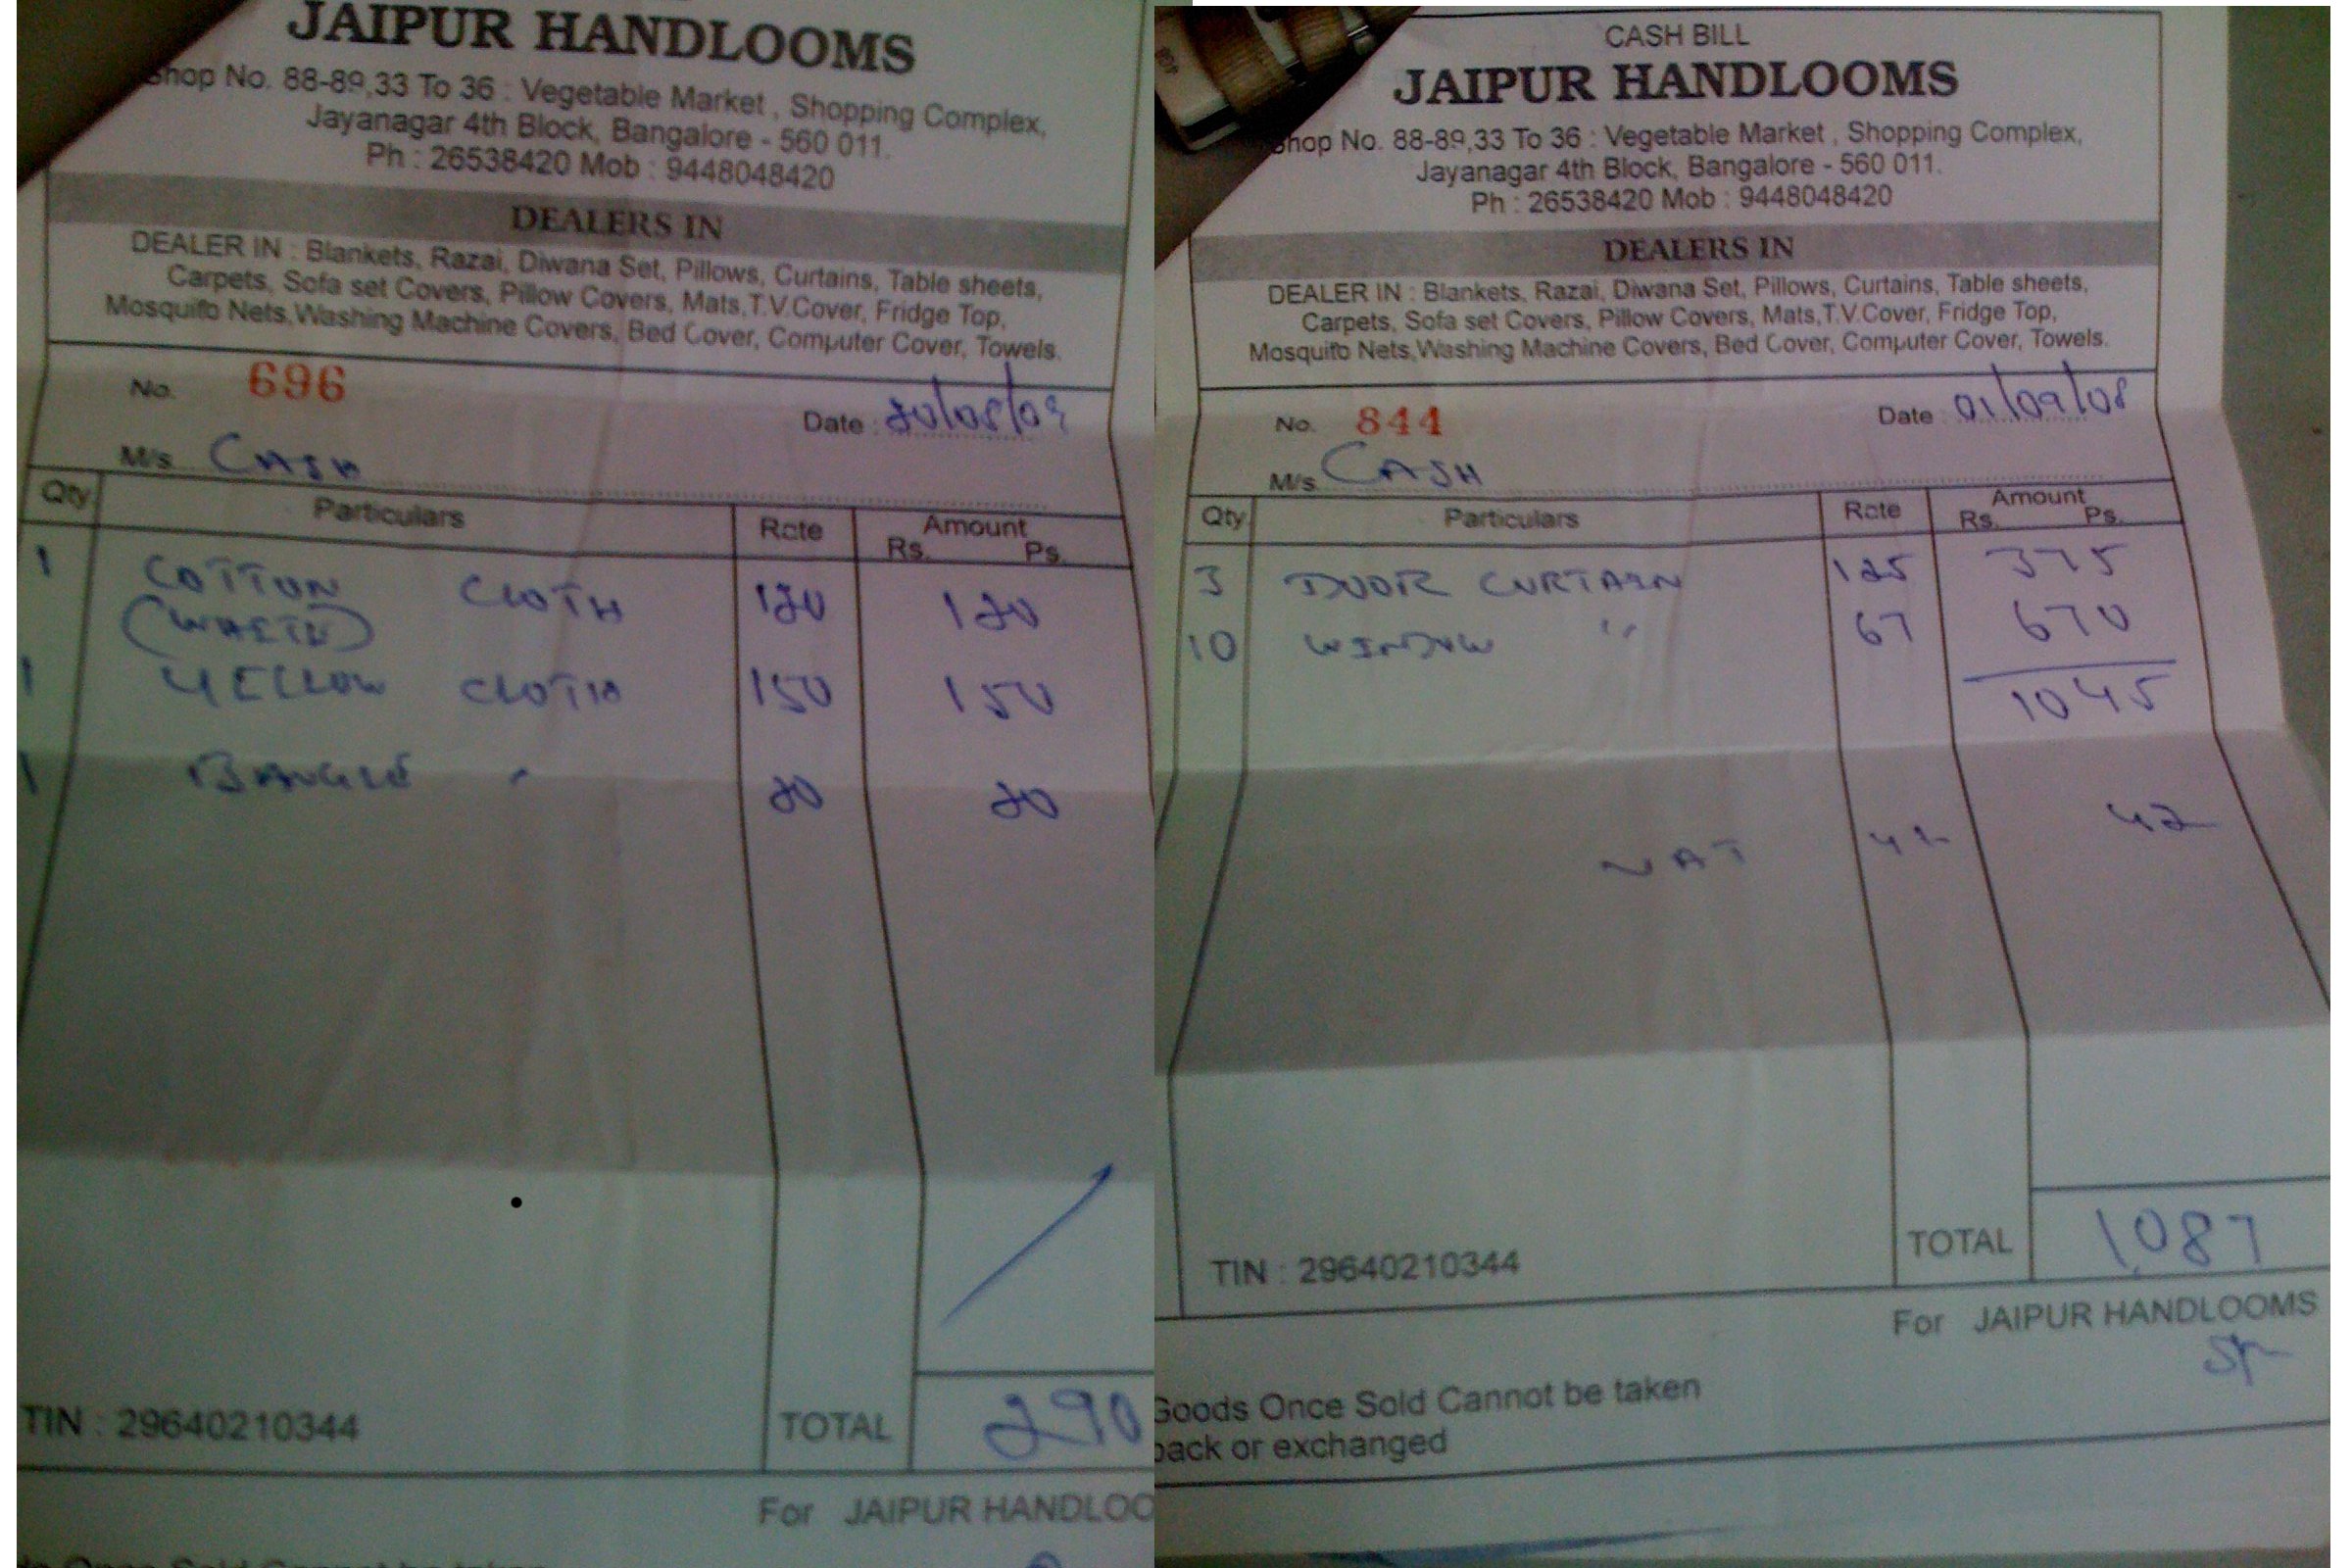 JAIPUR HANDLOOMS
Shop No. 88-89,33 To 36 : Vegetable Market , Shopping Complex,
Jayanagar 4th Block, Bangalore - 560 011.
Ph : 26538420 Mob : 9448048420
DEALERS IN
DEALER IN : Blankets, Razai, Diwana Set, Pillows, Curtains, Table sheets,
Carpets, Sofa set Covers, Pillow Covers, Mats,T.V.Cover, Fridge Top,
Mosquito Nets,Washing Machine Covers, Bed Cover, Computer Cover, Towels.
No. 696
Date :
M/s. CASH
Qty Particulars Rate Amount
Rs. Ps.
1 COTTON CLOTH 120 120
(WHITE)
1 YELLOW CLOTH 150 150
1 20 20
TIN : 29640210344 TOTAL 290
For JAIPUR HANDLOO
CASH BILL
JAIPUR HANDLOOMS
Shop No. 88-89,33 To 36 : Vegetable Market , Shopping Complex,
Jayanagar 4th Block, Bangalore - 560 011.
Ph : 26538420 Mob : 9448048420
DEALERS IN
DEALER IN : Blankets, Razai, Diwana Set, Pillows, Curtains, Table sheets,
Carpets, Sofa set Covers, Pillow Covers, Mats,T.V.Cover, Fridge Top,
Mosquito Nets,Washing Machine Covers, Bed Cover, Computer Cover, Towels.
No. 844
Date 01/09/08
M/s. CASH
Qty Particulars Rate Amount
Rs. Ps.
3 DOOR CURTAIN 125 375
10 WINDOW " 67 670
1045
VAT 42
TIN : 29640210344 TOTAL 1087
For JAIPUR HANDLOOMS
Goods Once Sold Cannot be taken
back or exchanged